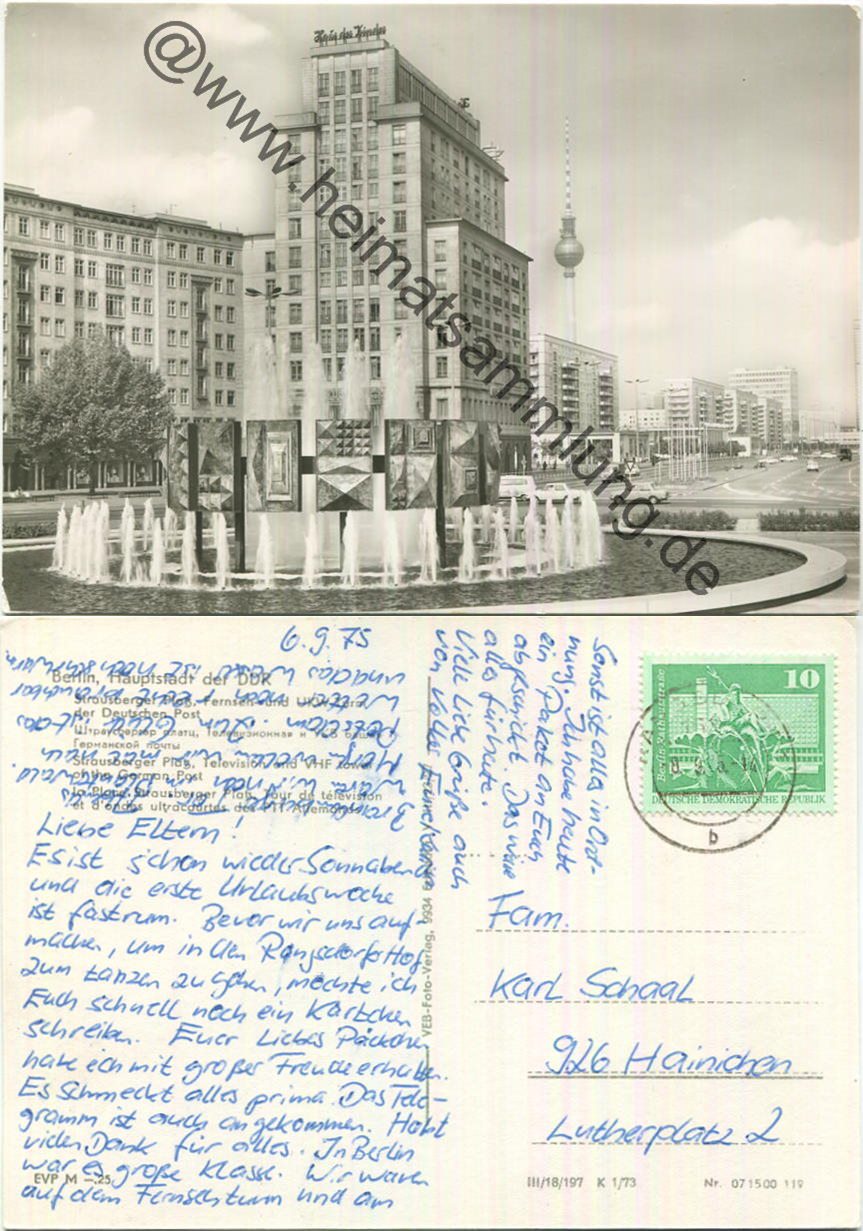 Haus des Kindes
@www.heimatsammlung.de
6.9.75
Berlin, Hauptstadt der DDR
Strausberger Platz, Fernseh- und UKW-Turm
der Deutschen Post
Штраусбергер платц, Телевизионная и УКВ башня
Германской почты
Strausberger Platz, Television and VHF tower
of the German Post
la Place Strausberger Platz, Tour de télévision
et d'ondes ultracourtes des PTT Allemandes
Liebe Eltern!
Es ist schon wieder Sonnabend
und die erste Urlaubswoche
ist fast rum. Bevor wir uns auf-
machen, um in den Rangsdorfer Hof
zum tanzen zu gehen, möchte ich
Euch schnell noch ein Kärtchen
schreiben. Euer liebes Päckchen
habe ich mit großer Freude erhalten.
Es schmeckt alles prima. Das Tele-
gramm ist auch angekommen. Habt
vielen Dank für alles. In Berlin
war es große Klasse. Wir waren
auf dem Fernsehturm und am
waren wir noch
wollen wir mal nach
Potsdam.
EVP M –.25
VEB-Foto-Verlag, 9934
Sonst ist alles in Ord-
nung. Ich habe heute
ein Paket an Euch
abgeschickt. Das wäre
alles für heute.
Viele liebe Grüße auch
von
10
Berlin-Rathausstraße
DEUTSCHE DEMOKRATISCHE REPUBLIK
b
Fam.
Karl Schaal
926 Hainichen
Lutherplatz 2
III/18/197 K 1/73
Nr. 07 15 00 119